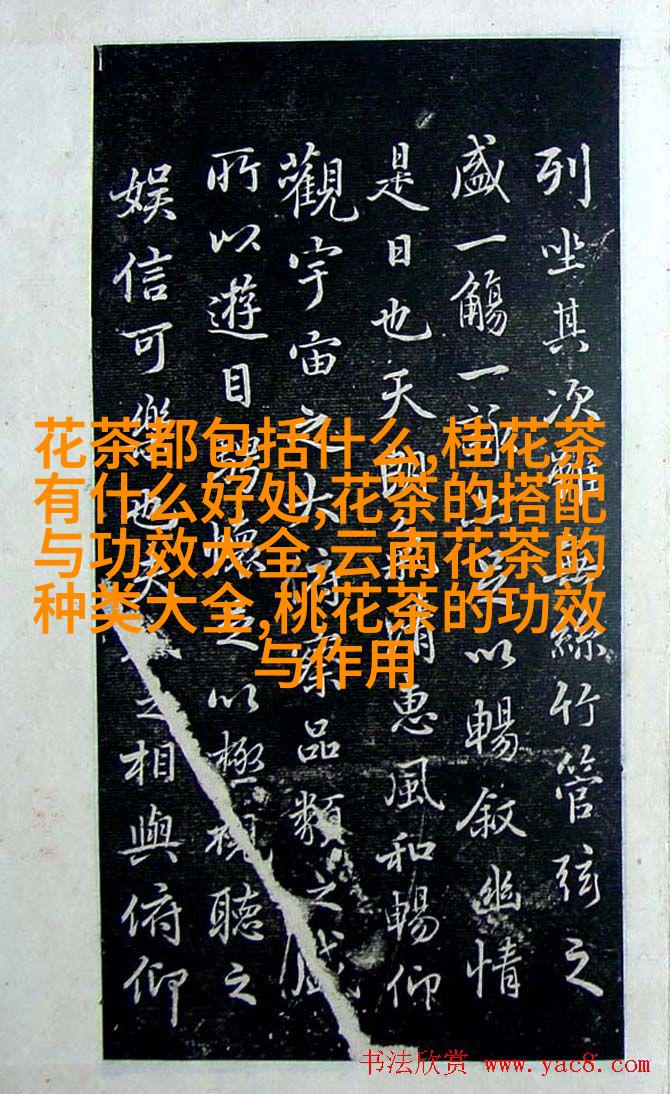 列坐其次雖無絲竹管弦之
盛一觴一詠亦足以暢叙幽情
是日也天朗氣清惠風和暢仰
觀宇宙之大俯察品類之盛
所以遊目騁懷足以極視聽之
娱信可樂也夫之相與俯仰
花茶都包括什么,桂花茶
有什么好处,花茶的搭配
与功效大全,云南花茶的
种类大全,桃花茶的功效
与作用
书法欣赏 www.yac8.com